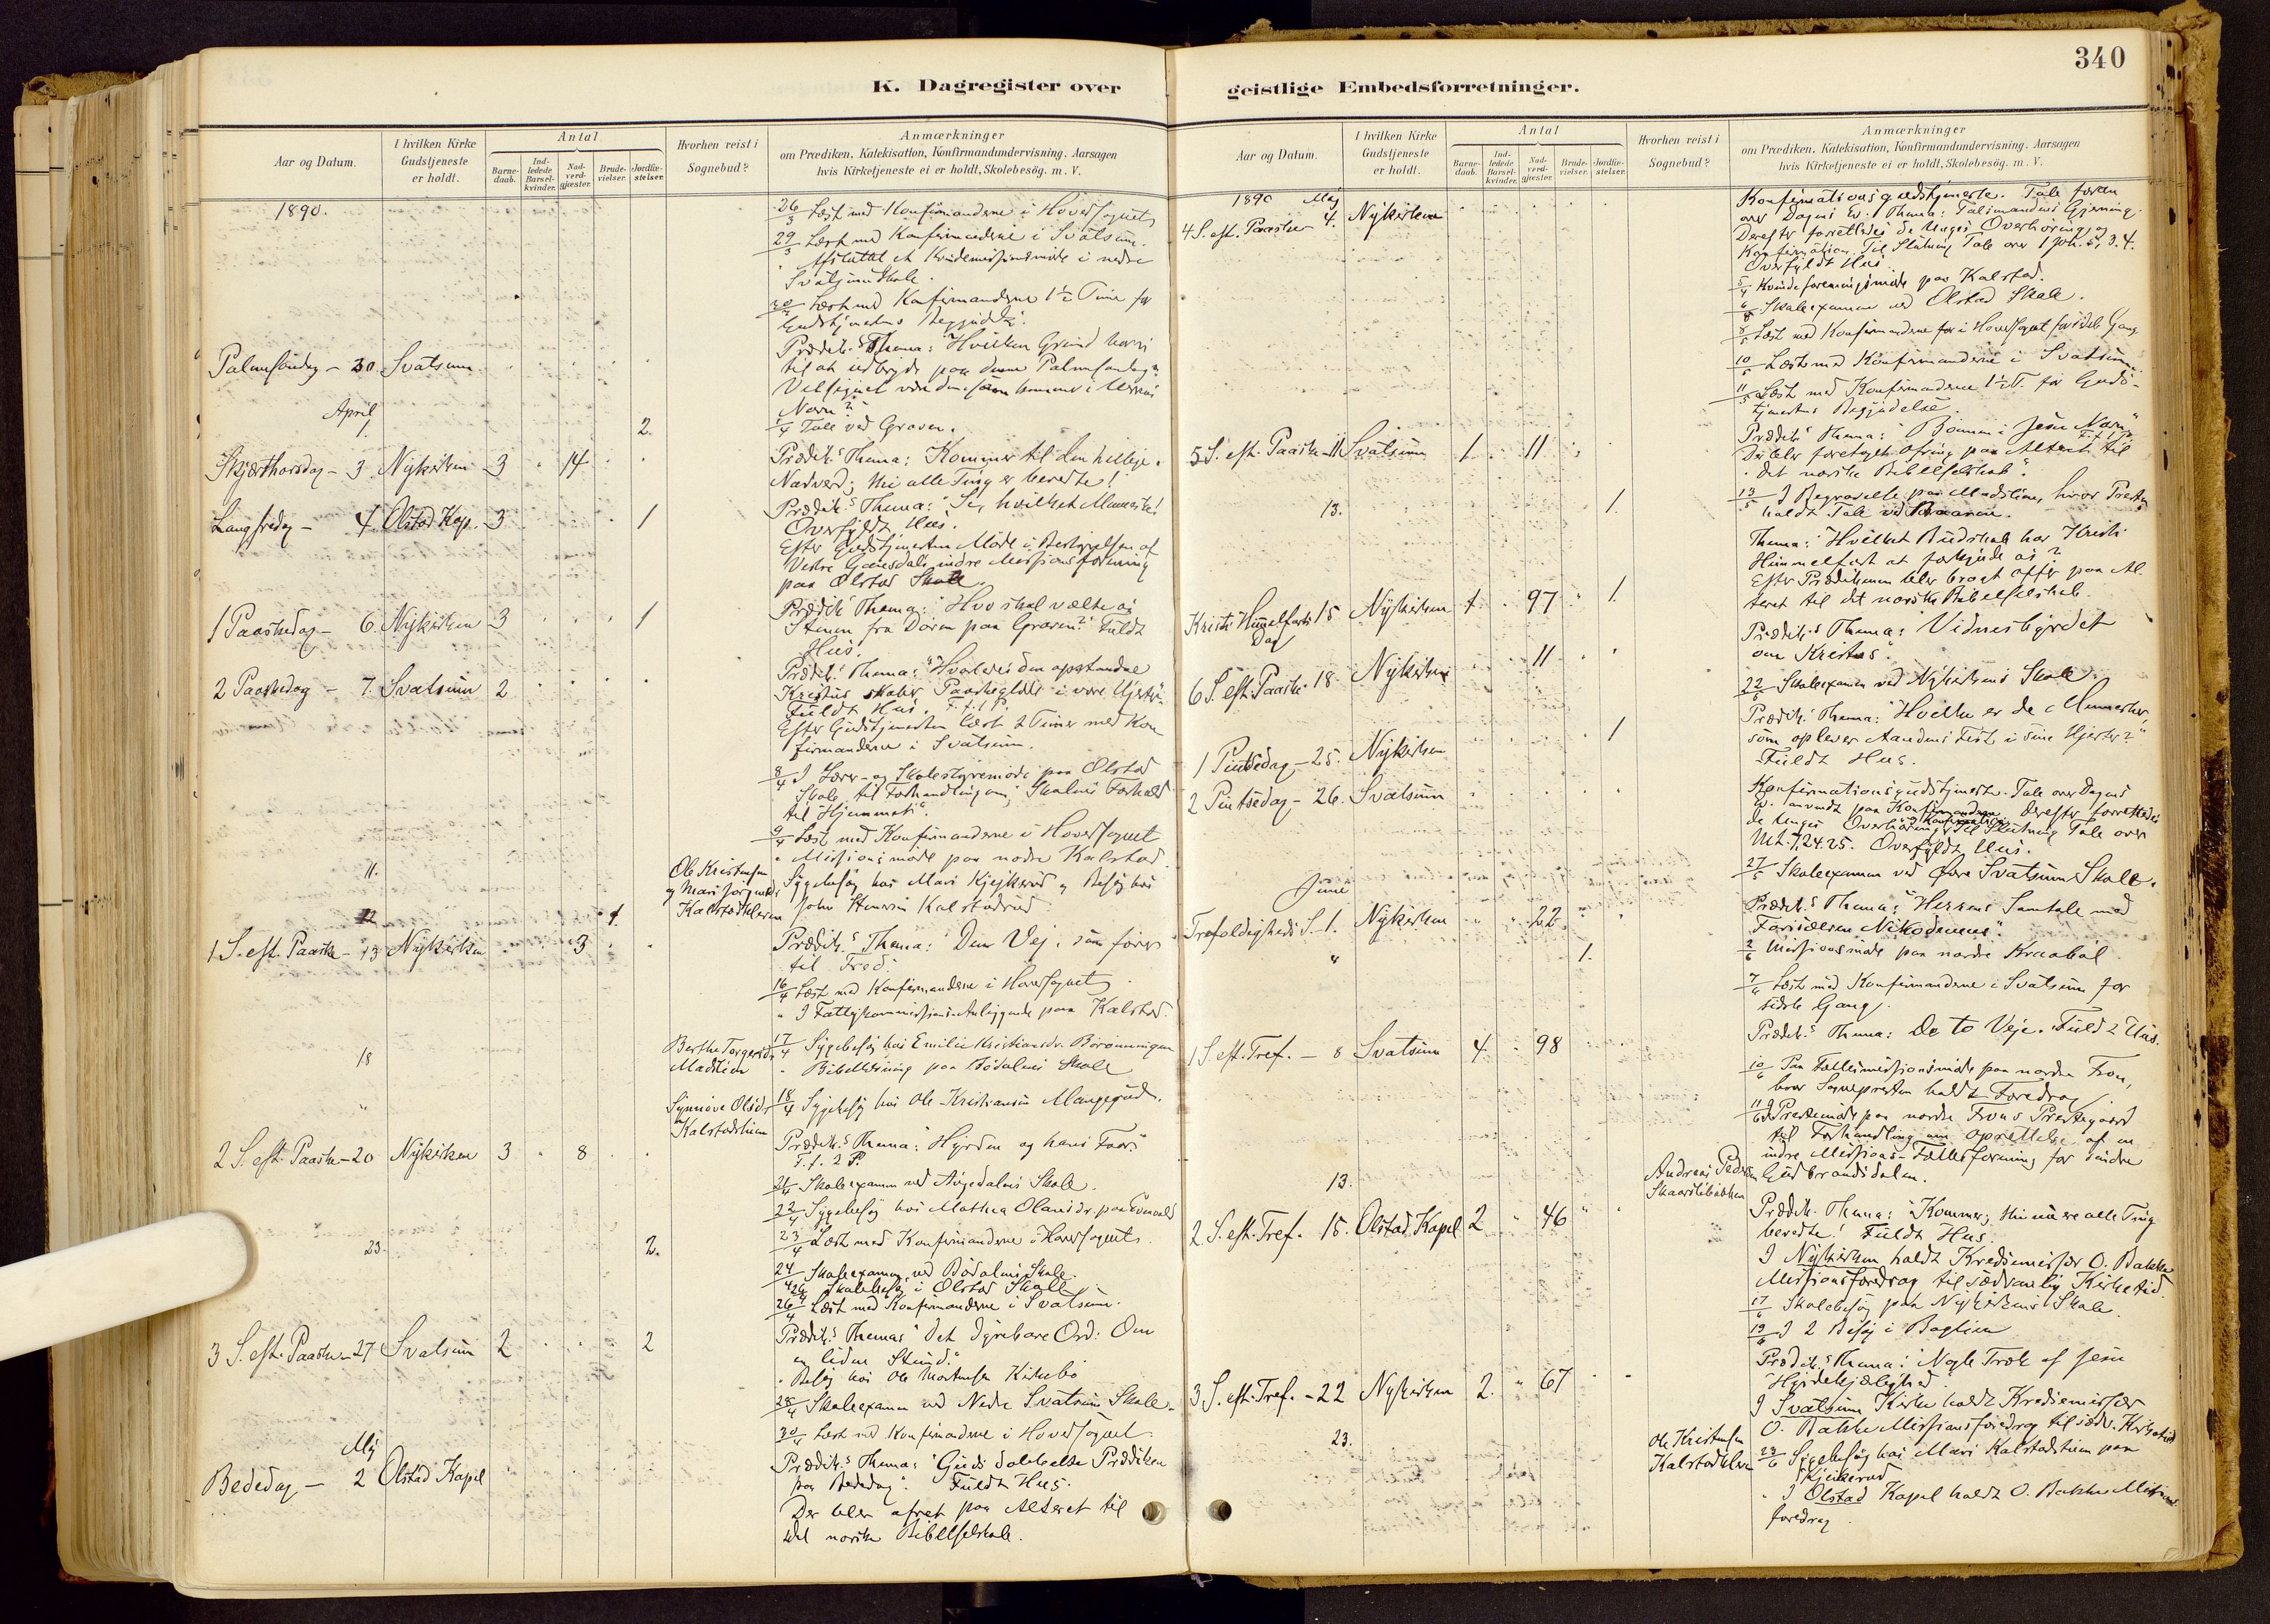 340
K. Dagregister over geistlige Embedsforretninger.
Aar og Datum.
I hvilken Kirke Gudstjeneste er holdt.
Antal
Barne-daab.
Ind-ledede Barsel-kvinder.
Nad-verd-gjæster.
Brude-vielser.
Jordfæ-stelser.
Hvorhen reist i Sognebud?
Anmærkninger
om Prædiken, Katekisation, Konfirmandundervisning, Aarsagen
hvis Kirketjeneste ei er holdt, Skolebesög. m. V.
1890.
26/3 Læst med Konfirmanderne i Hovedsognet
29/3 Læst med Konfirmanderne i Svatsum.
" Afsluttet et Kvindemissionsmøde i nedre
Svatsum Skole.
30/3 Læst med Konfirmanderne 1½ Time før
Gudstjenestens Begyndelse.
Palmesøndag - 30. Svatsum
Prædik.s Thema: "Hvilken Grund have vi
til at udbryde paa denne Palmesøndag:
Velsignet være den, som kommer i Herrens
Navn?"
April
1. 2.
1/4 Tale ved Graven.
Skjærthorsdag - 3. Nykirken 3 14
Prædik.s Thema: "Kommer til den hellige
Nadverd; thi alle Ting er beredte!
Langfredag - 4 Olstad Kap. 3 1
Prædik.s Thema: "Se, hvilket Menneske!
Overfyldt Hus.
Efter Gudstjenesten Møde i Bestyrelsen af
Vestre Gausdals indre Missionsforening
paa Olstad Skole.
1 Paaskedag - 6. Nykirken 3 1
Prædik.s Thema: "Hvo skal vælte os
Stenen fra Døren paa Graven?" Fuldt
Hus.
2 Paaskedag - 7. Svatsum 2
Prædik.s Thema: "Hvorledes den opstandne
Kristus skaber Paaskeglæde i vore Hjerter."
Fuldt Hus. F. f. 1 P.
Efter Gudstjenesten læst 2 Timer med Kon
firmanderne i Svatsum.
8/4 I Lærer- og Skolestyremøde paa Olstad
Skole til Forhandling om "Skolens Forhold
til Hjemmet".
9/4 Læst med Konfirmanderne i Hovedsognet
" Missionsmøde paa nedre Kalstad.
11. Ole Kristensen
og Mari Jørgensdr
Kalstadkleven
Sygebesøg hos Mari Kjeikerud og Besøg hos
John Hansen Kalstadrud
12 1.
1 S. eft. Paaske - 13 Nykirken 3
Prædik.s Thema: "Den Vej, som fører
til Fred."
16/4 Læst med Konfirmanderne i Hovedsognet
" I Fattigkommissions-Anliggende paa Kalstad.
18 Berthe Torgersdr
Madslien
17/4 Sygebesøg hos Emilie Kristiansdr.
" Bibellæsning paa Bødalens Skole
" Synnøve Olsdr
Kalstadstuen
18/4 Sygebesøg hos Ole Kristiansen
2 S. eft. Paaske - 20 Nykirken 3 8
Prædik.s Thema: "Hyrden og hans Faar."
F. f. 2 P.
21/4 Skoleexamen ved Augedalens Skole.
22/4 Sygebesøg hos Mathea Olausdr.
23. 2.
23/4 Læst med Konfirmanderne i Hovedsognet.
24/4 Skoleexamen ved Bødalens Skole.
Skolebesøg i Olstad Skole
26/4 Læst med Konfirmanderne i Svatsum.
3 S. eft. Paaske - 27 Svatsum 2 2
Prædik.s Thema: "Det dyrebare Ord: Om
en liden Stund."
" Besøg hos Ole Mortensen Kirkebø
28/4 Skoleexamen ved Nedre Svatsum Skole.
30/4 Læst med Konfirmanderne i Hovedsognet.
Maj
Bededag - 2 Olstad Kapel
Prædik.s Thema: "Guds dobbelte Prædiken
paa Bededag." Fuldt Hus.
Der blev ofret paa Alteret til
det norske Bibelselskab.
Aar og Datum.
I hvilken Kirke Gudstjeneste er holdt.
Antal
Barne-daab.
Ind-ledede Barsel-kvinder.
Nad-verd-gjæster.
Brude-vielser.
Jordfæ-stelser.
Hvorhen reist i Sognebud?
Anmærkninger
om Prædiken, Katekisation, Konfirmandundervisning, Aarsagen
hvis Kirketjeneste ei er holdt, Skolebesög. m. V.
1890 Maj
4 S. eft. Paaske 4. Nykirken
Konfirmationsgudstjeneste. Tale
over Dagens Ev. Thema: Talsmandens Gjerning.
Derefter forrettedes de Unges Overhøring og
Konfirmation. Til Slutning Tale over 1 Joh. 5, 3.4.
Overfyldt Hus.
Kvindeforeningsmøde paa Kalstad.
Skoleexamen ved Olstad Skole.
8/5 Læst med Konfirmanderne i Hovedsognet for sidste Gang
10/5 Læst med Konfirmanderne i Svatsum
11/5 Læst med Konfirmanderne 1½ T. før Guds-
tjenestens Begyndelse.
5 S. eft. Paaske - 11 Svatsum 1. 11
Prædik.s Thema: "Bønnen i Jesu Navn"
Der blev foretaget Ofring paa Alteret til
"det norske Bibelselskab".
13. 1.
13/5 I Begravelse paa Madslien, hvor Presten
holdt Tale ved Baaren.
Kristi Himmelfarts 15 Nykirken 1. 97 1.
Dag
Thema: "Hvilket Budskab har Kristi
Himmelfart at forkynde os?
Efter Prædikenen blev bragt Offer paa Al-
teret til det norske Bibelselskab.
6 S. eft. Paaske 18 Nykirken 11
Prædik.s Thema: Vidnesbyrdet
om Kristus.
22/5 Skoleexamen ved Nykirkens Skole.
1 Pintsedag - 25. Nykirken 1
Prædik.s Thema: "Hvilke er de Mennesker,
som oplever Aandens Fest i sine Hjerter?"
Fuldt Hus.
2 Pintsedag - 26. Svatsum
Konfirmationsgudstjeneste. Tale over Dagens
Ev. anvendt paa Konfirmanderne. Derefter forrettedes
de Unges Overhøring og Konfirmation. Til Slutning Tale over
Mt. 7, 24.25. Overfyldt Hus.
27/5 Skoleexamen ved Øvre Svatsum Skole.
Juni
Trefoldigheds S. 1. Nykirken 22
Prædik.s Thema: "Herrens Samtale med
Farisæeren Nikodemus".
" 1.
2/6 Missionsmøde paa nordre Kraabøl.
7/6 Læst med Konfirmanderne i Svatsum for
sidste Gang.
1 S. eft. Tref. - 8 Svatsum 4. 98
Prædik.s Thema: De to Veje. Fuldt Hus.
10/6 Paa Fællesmissionsmøde paa nordre Fron,
hvor Sognepresten holdt Foredrag.
11/6 Prestemøde paa nordre Frons Prestegaard
til Forhandling om Oprettelse af en
indre Missions-Fællesforening for søndre
Gudbrandsdalen.
13. Andreas Pedersen
Skaarslibakken
2 S. eft. Tref. 15. Olstad Kapel 2 46
Prædik. Thema: "Kommer; thi nu ere alle Ting
beredte! Fuldt Hus.
I Nykirken holdt Kredsemissær O. Bakke
Missionsforedrag til sædvanlig Kirketid.
17/6 Skolebesøg paa Nykirkens Skole.
19/6 I 2 Besøg i Baglien
3 S. eft. Tref. - 22 Nykirken 2. 67
Prædik.s Thema: Nogle Træk af Jesu
Hyrdekjærlighed.
I Svatsum Kirke holdt Kredsemissær
O. Bakke Missionsforedrag til sædv. Kirketid
23. Ole Kristensen
Kalstadkleven
23/6 Sygebesøg hos Mari Kalstadstuen paa
Kjeikerud
" I Olstad Kapel holdt O. Bakke Missions-
foredrag.